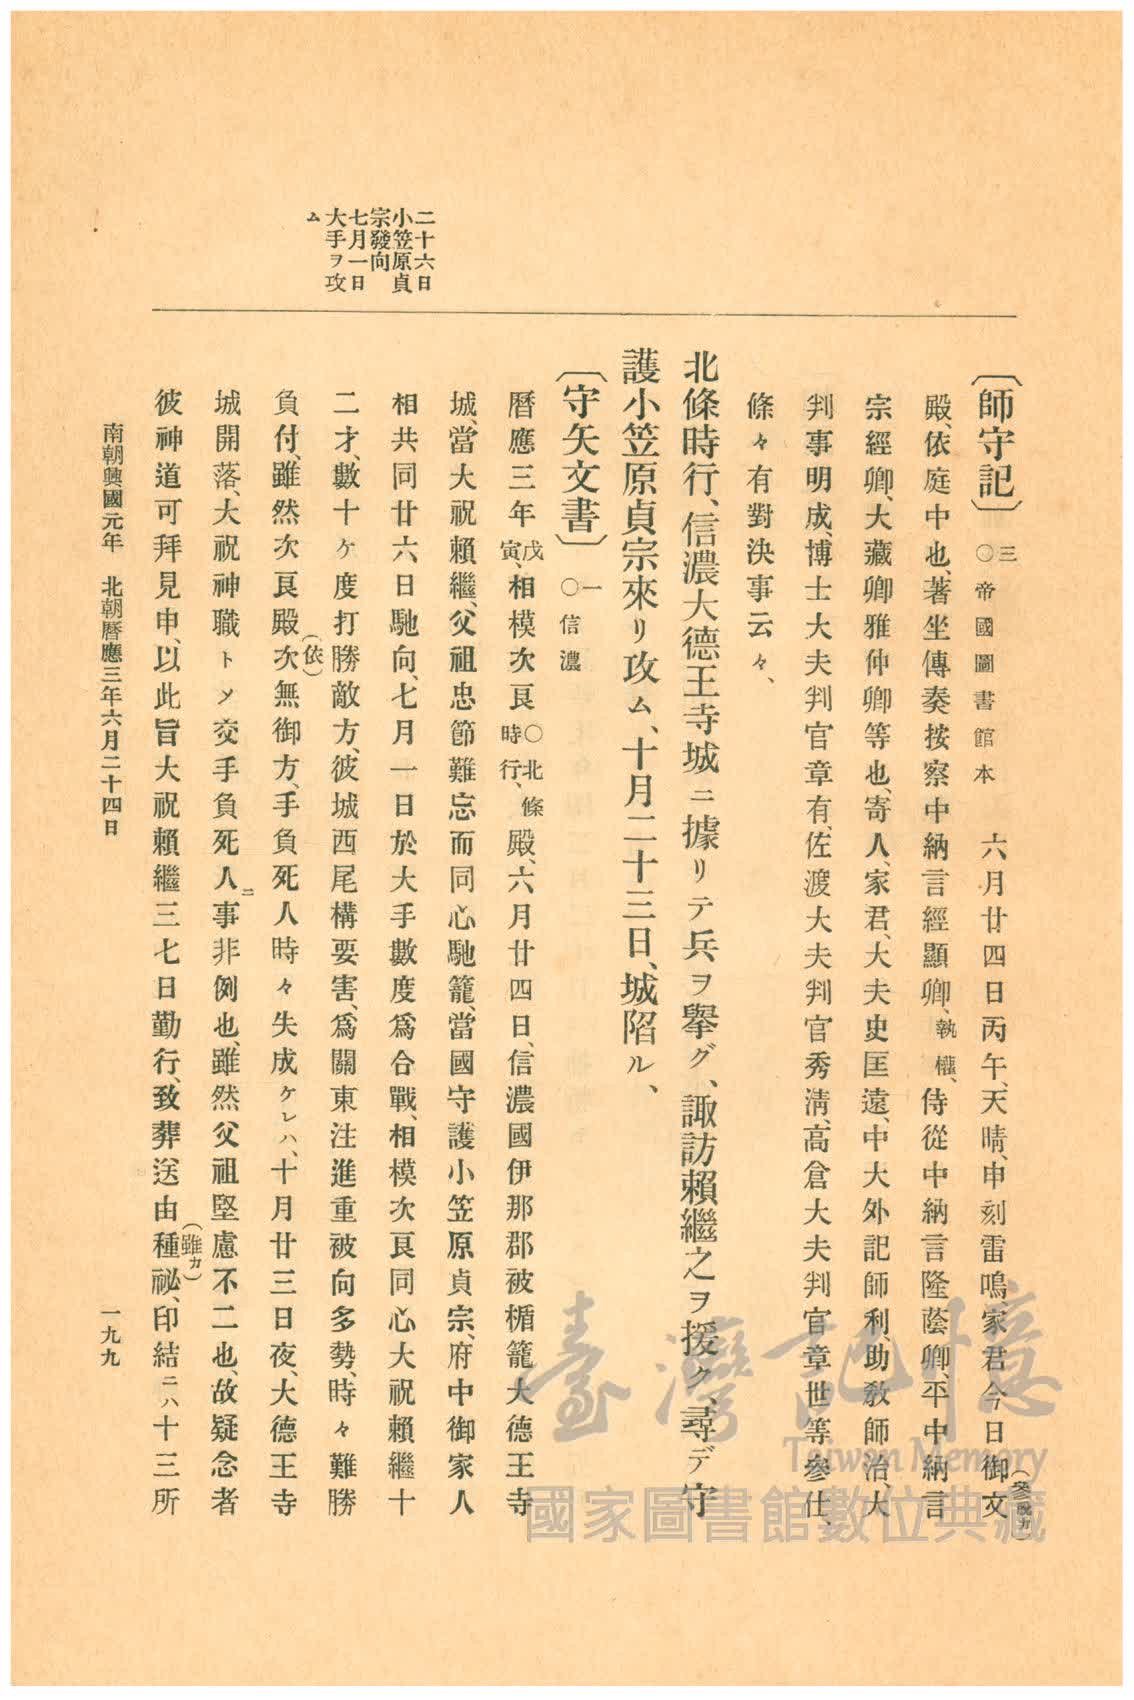 二十六日
小笠原貞
宗發向
七月一日
大手ヲ攻
ム
〔師守記〕 三 ○帝國圖書館本 六月廿四日丙午、天晴、申刻雷鳴家君今日御文(參脫カ)
殿、依庭中也、著坐傳奏按察中納言經顯卿、執權、侍從中納言隆蔭卿、平中納言
宗經卿、大藏卿雅仲卿等也、寄人、家君、大夫史匡遠、中大外記師利、助敎師治、大
判事明成、博士大夫判官章有、佐渡大夫判官秀淸、高倉大夫判官章世等參仕、
條々有對決事云々、
北條時行、信濃大德王寺城ニ據リテ兵ヲ擧グ、諏訪賴繼之ヲ援ク、尋デ守
護小笠原貞宗來リ攻ム、十月二十三日、城陷ル、
〔守矢文書〕 一 ○信濃
曆應三年戊寅、相模次良○北條時行、殿、六月廿四日、信濃國伊那郡被楯籠大德王寺
城、當大祝賴繼、父祖忠節難忘而同心馳籠、當國守護小笠原貞宗、府中御家人
相共同廿六日馳向、七月一日於大手數度爲合戰、相模次良同心大祝賴繼十
二才、數十ケ度打勝敵方、彼城西尾構要害、爲關東注進重被向多勢、時々難勝
負付、雖然次良殿次(依)無御方、手負死人時々失成ケレハ、十月廿三日夜、大德王寺
城開落、大祝神職トメ交手負死人ニ事非例也、雖然父祖堅慮不二也、故疑念者
彼神道可拜見申、以此旨大祝賴繼三七日勤行、致葬送由種(雖カ)祕、印結ニハ十三所
南朝興國元年 北朝曆應三年六月二十四日
一九九
臺灣記憶
Taiwan Memory
國家圖書館數位典藏